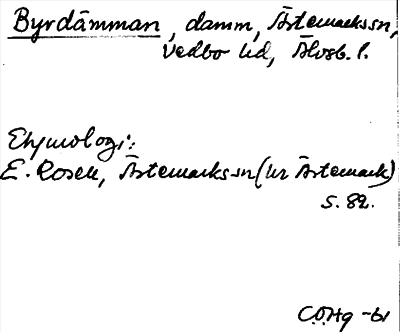 Byrdämman, damm, Ärtemarks sn,
Vedbo hd, Älvsb. l.
Etymologi:
E. Rosell, Ärtemarks sn (ur Ärtemark)
s. 82.
C.O.Hg -61